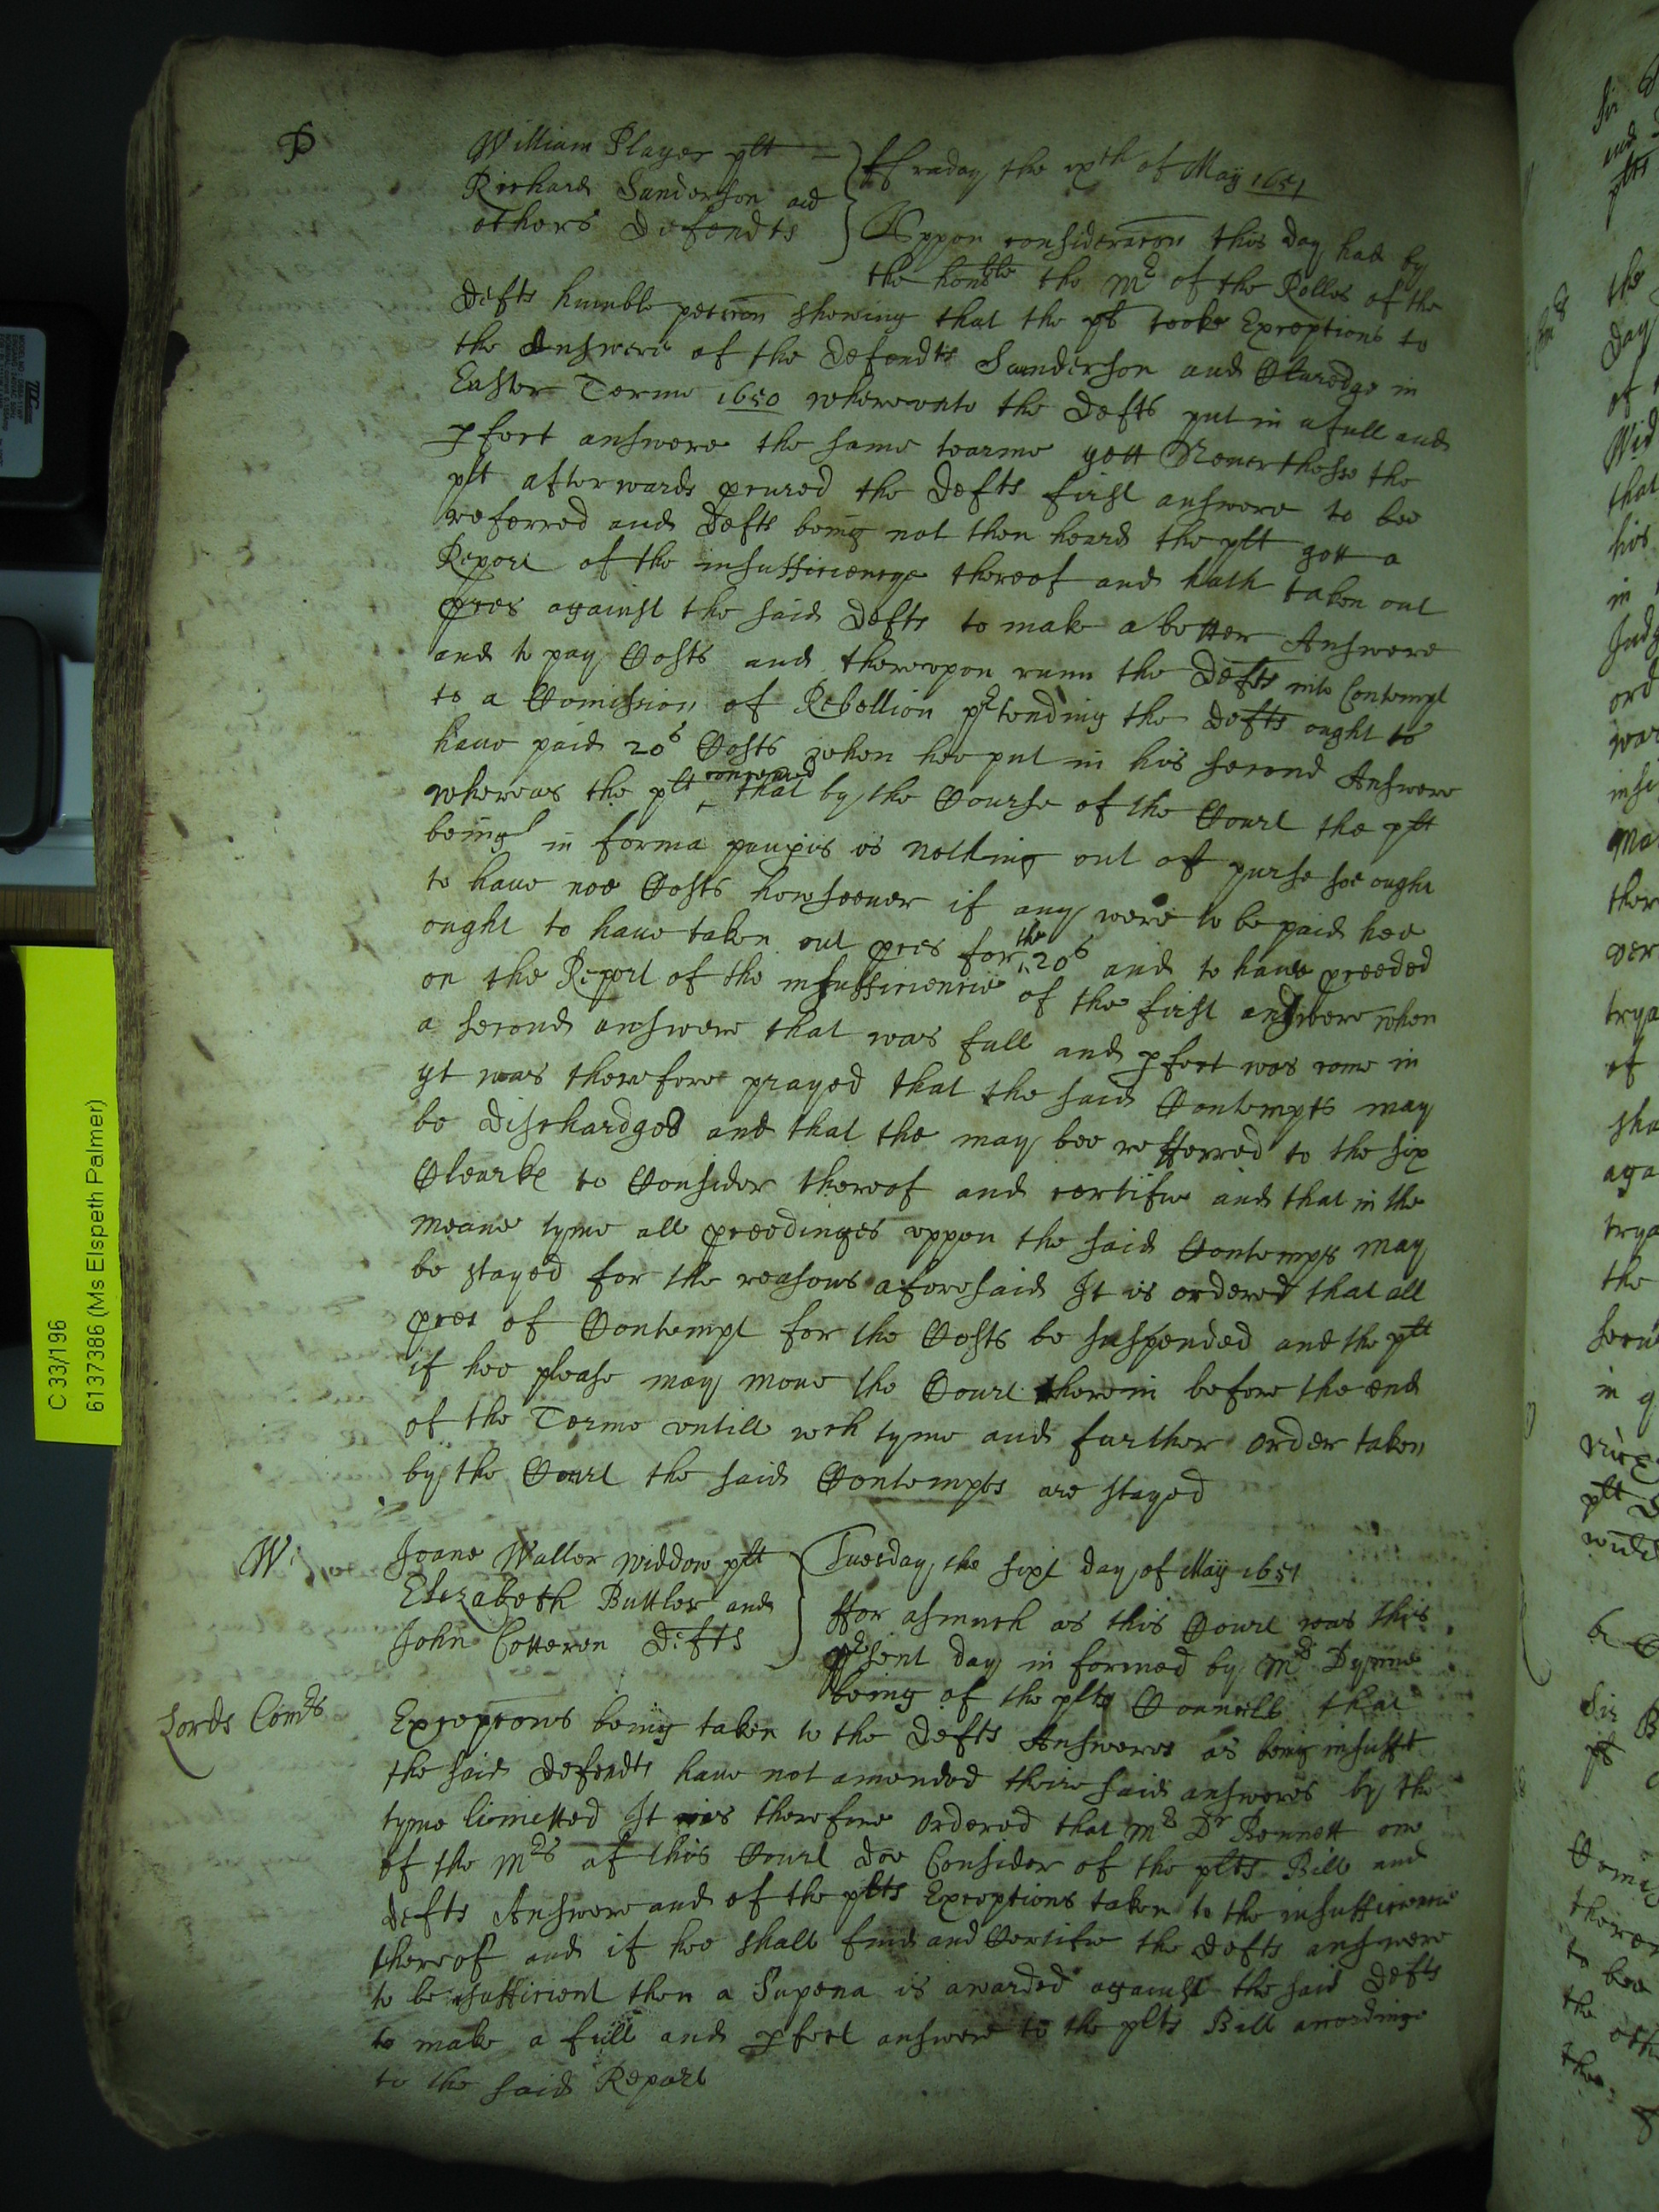 P
William Player plt
Richard Sanderson and
others Defendts
ffraday the ixth of May 1651
Vppon consideracon this day had by
the honble the Mr of the Rolles of the
Defts humble peticon shewing that the plt tooke Exceptions to
the Answere of the Defendts Sanderson and in
Easter Terme 1650 wherevnto the Defts put in a full and
pfect answere the same tearme yett Neuerthelesse the
plt afterwards pcured the Defts first answere to bee
referred and Defts being not then heard the plt gott a
Report of the insufficiencye thereof and hath taken out
pces against the said Defts to make a better Answere
and to pay Costs and therevpon runn the Defts into Contempt
to a Comission of Rebellion prtending the Defts ought to
haue paid 20s Costs when hee put in his second Answere
whereas the plt conceaued that by the Course of the Court the plt
being in forma paupis is nothing out of purse soe ought
to haue noe Costs howsoeuer if any were to be paid hee
ought to haue taken out pces for the 20s and to haue pceeded
on the Report of the insufficiencie of the first answere when
a second answere that was full and pfect was come in
yt was therefore prayed that the said Contempts may
be dischardged and that the may bee refferred to the six
Clearke to Consider thereof and certifie and that in the
meane tyme all pceedinges vppon the said Contempts may
be stayed for the reasons aforesaid It is ordered that all
pces of Contempt for the Costs be suspended and the plt
if hee please may moue the Court therein before the end
of the Terme vntill wch tyme and further order taken
by the Court the said Contempts are stayed
W
Joane Waller widdow plt
Elizabeth Buttler and
John Cotteren Defts
Tuesday the sixt day of May 1651
ffor asmuch as this Court was this
prsent day informed by Mr
being of the plts Councell that
Lords Comrs
Excepcons being taken to the Defts Answeres as being insufft
the said Defendts haue not amended theire said answeres by the
tyme limetted It is therefore Ordered that Mr Dr Bennett one
of the Mrs of this Court doe Consider of the plts Bill and
Defts Answere and of the plts Exceptions taken to the insufficiencie
thereof and if hee shall find and Certifie the Defts answere
to be insufficient then a Supena is awarded against the said Defts
to make a full and pfect answere to the plts Bill accordinge
to the said Report
C 33/196
6137386 (Ms Elspeth Palmer)